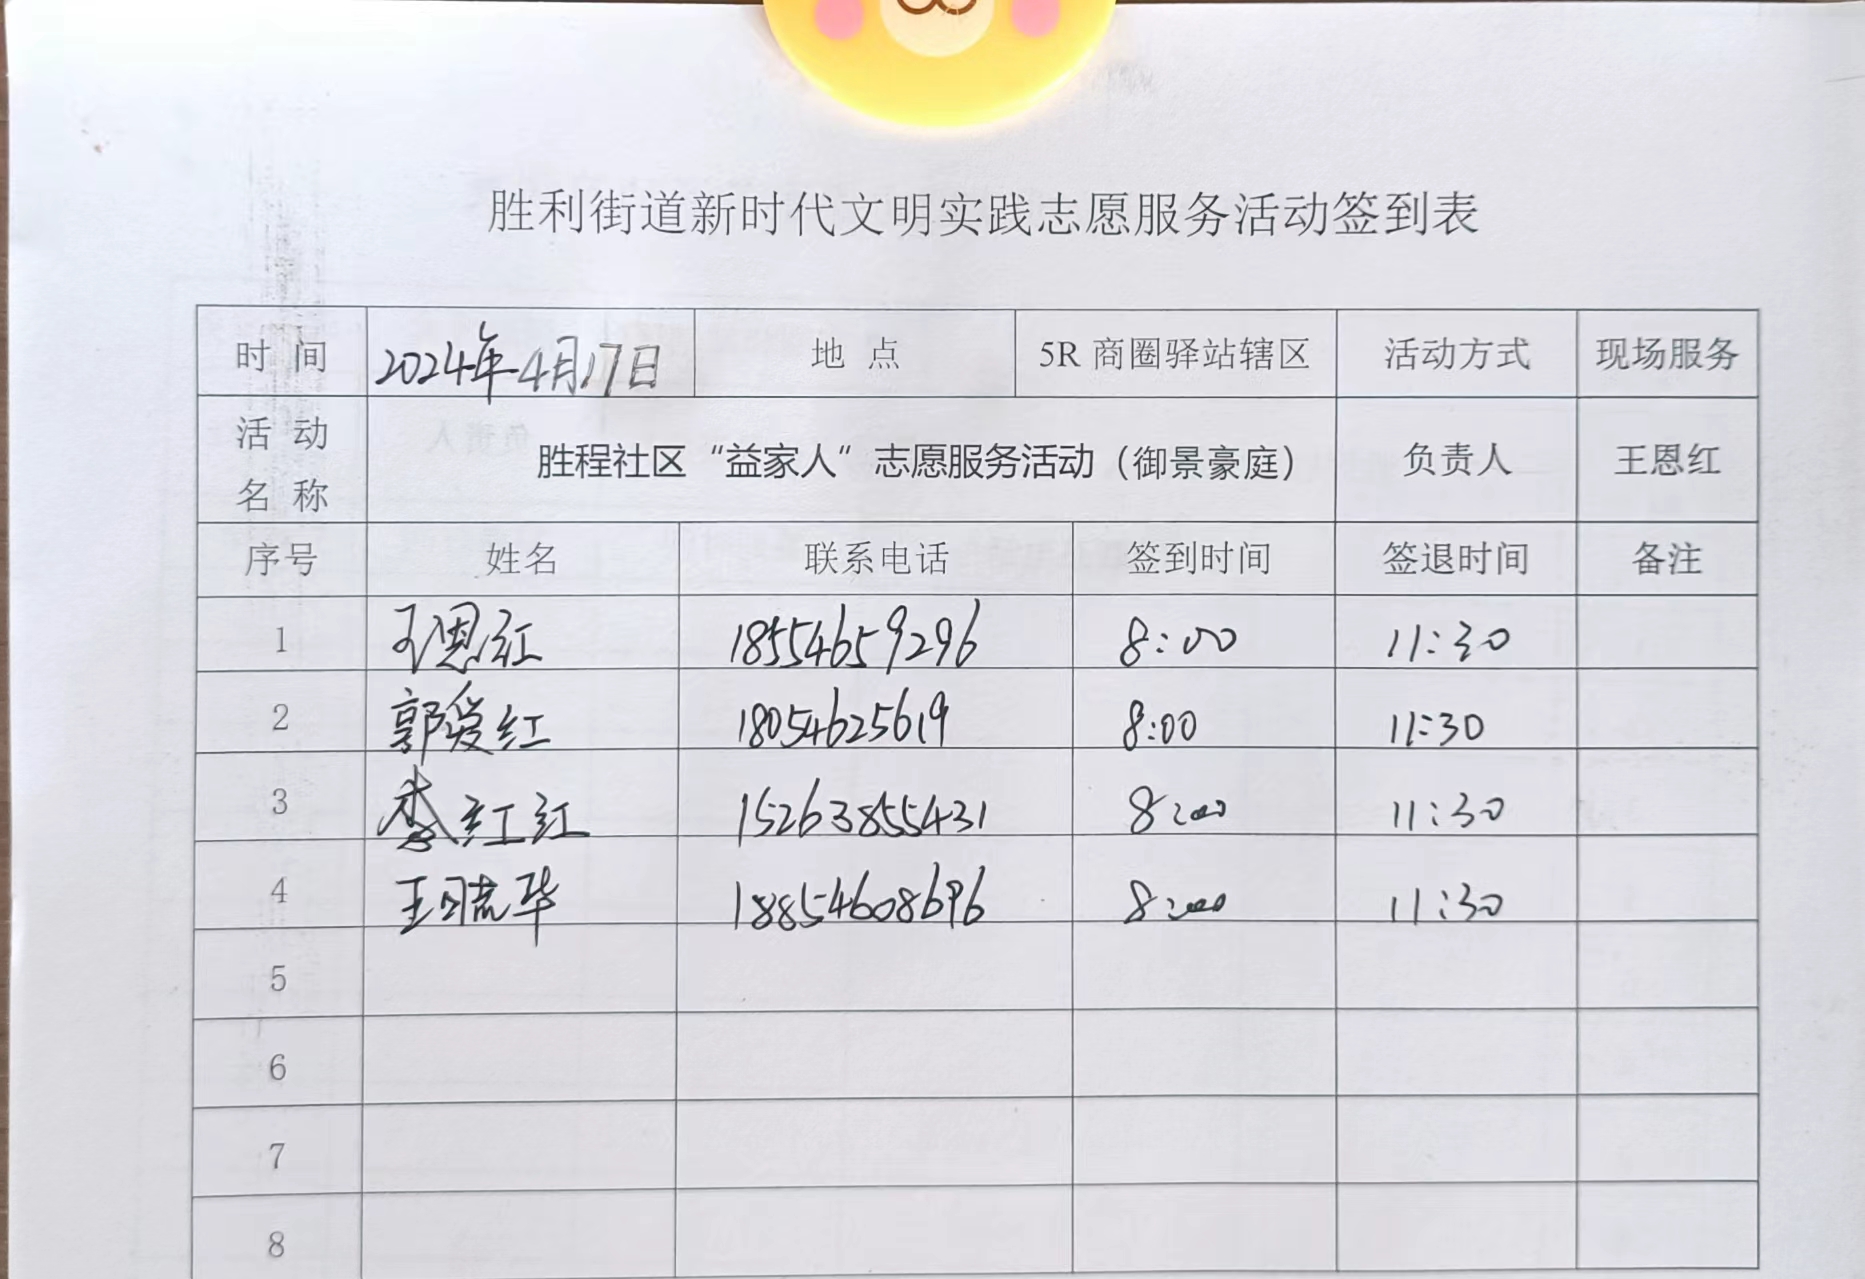 胜利街道新时代文明实践志愿服务活动签到表
时 间 2024年4月17日 地 点 5R 商圈驿站辖区 活动方式 现场服务
活 动
名 称 胜程社区“益家人”志愿服务活动（御景豪庭） 负责人 王恩红
序号 姓名 联系电话 签到时间 签退时间 备注
1 王恩红 18554659296 8:00 11:30
2 郭爱红 18054625619 8:00 11:30
3 李红红 15263855431 8:00 11:30
4 王晓华 18854608696 8:00 11:30
5
6
7
8